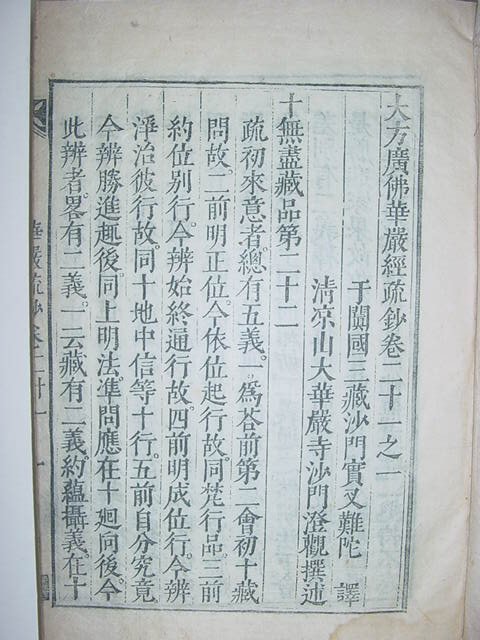 大方廣佛華嚴經疏鈔卷二十一之一
于闐國三藏沙門實叉難陀 譯
清凉山大華嚴寺沙門澄觀撰述
十無盡藏品第二十二
疏初來意者。總有五義。一爲荅前第二會初十藏
問故。二前明正位。今依位起行故。同梵行品三前
約位別行。今辨始終通行故。四前明成位行。今辨
淨治彼行故。同十地中信等十行。五前自分究竟
今辨勝進趣後。同上明法。準問應在十廻向後。今
此辨者。畧有二義。一云藏有二義。約蘊攝義。在十
華嚴疏鈔卷二十一